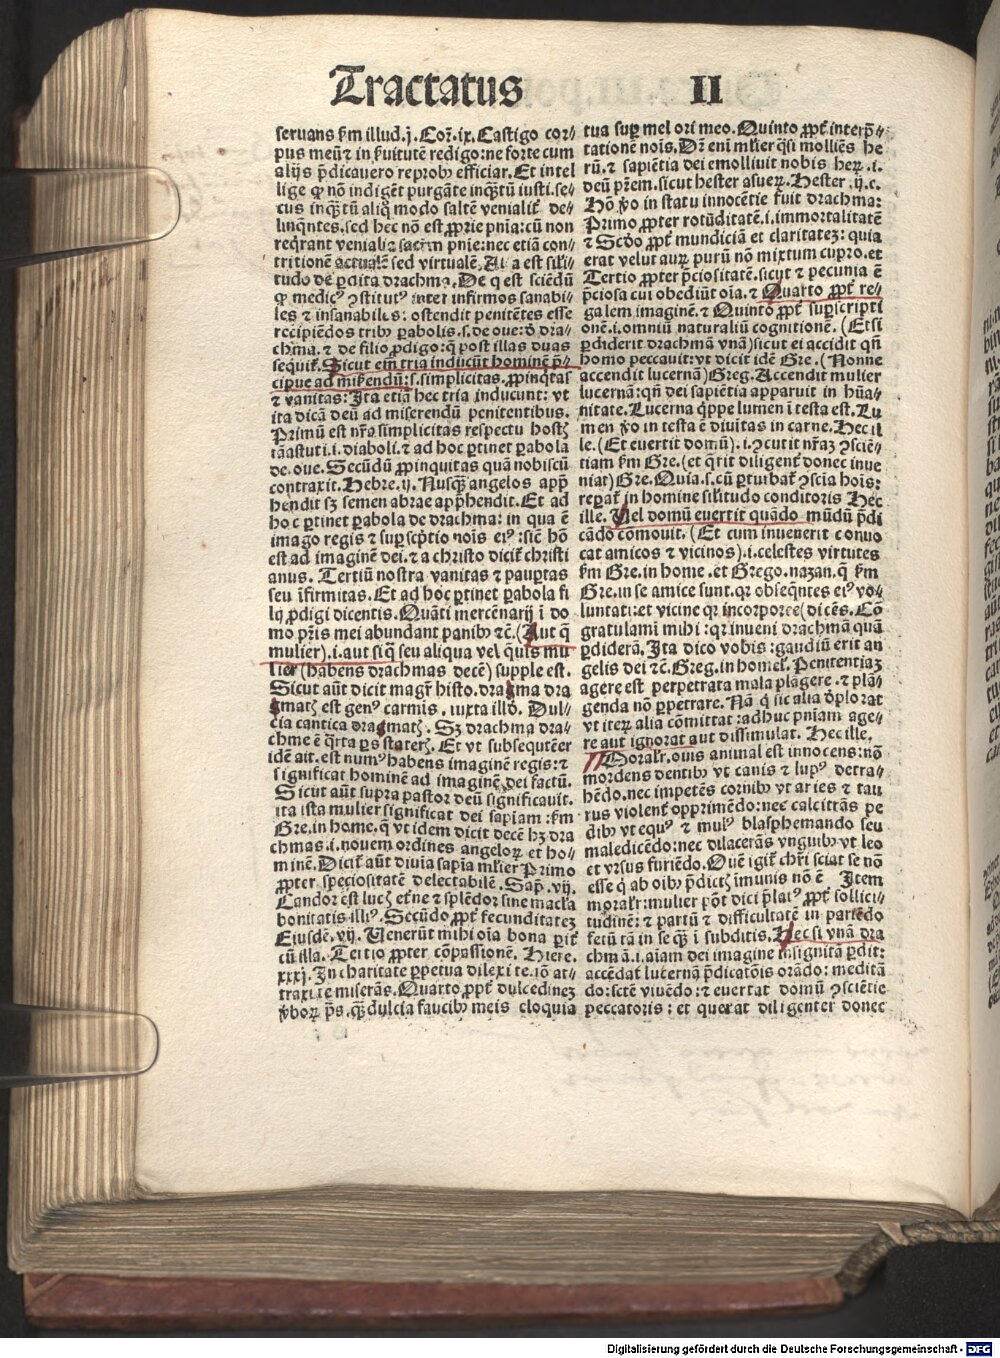 Tractatus II
seruans ẜm illud.j. Coꝛ̃.ix. Castigo coꝛ/
pus meũ ⁊ in ẜuitutẽ redigo: ne foꝛte cum
alijs p̃dicauero repꝛobꝰ efficiar. Et intel
lige ꝙ nõ indigẽt purgãte inq̃tũ iusti. se/
cus inq̃tũ aliq̃ modo saltẽ venialit̃ de/
linq̃ntes. sed hec nõ est ꝓprie pnĩa: cũ non
req̃rant venialia sacr̃m pnĩe: nec etiã con/
tritionẽ actualẽ sed virtualẽ. Alia est sili/
tudo de ꝑdita drachma. De q̃ est sciẽdũ
ꝙ medicꝰ ꝯstitutꝰ inter infirmos sanabi/
les ⁊ insanabiles: ostendit penitẽtes esse
recipiẽdos tribꝰ ꝑabolis. s. de oue: d̃ dra/
chma. ⁊ de filio ꝓdigo: q̃ post illas duas
sequit̃. Sicut em̃ tria inducũt hominẽ p̃/
cipue ad miẜendũ: s. simplicitas. ꝓpinq̃tas
⁊ vanitas: Ita etiã hec tria inducunt: vt
ita dicã deũ ad miserendũ penitentibus.
Primũ est nr̃a simplicitas respectu hostꝭ
tã astuti .i. diaboli. ⁊ ad hoc ꝑtinet ꝑabola
de oue. Secũdũ ꝓpinquitas quã nobiscũ
contraxit. Hebre. ij. Nusq̃ȝ angelos app̃
hendit sȝ semen abrae app̃hendit. Et ad
hoc ꝑtinet ꝑabola de drachma: in qua ẽ
imago regis ⁊ supsc̃ptio noĩs eiꝰ: sic̃ hõ
est ad imaginẽ dei. ⁊ a christo dicit̃ christi
anus. Tertiũ nostra vanitas ⁊ pauꝑtas
seu ĩfirmitas. Et ad hoc ꝑtinet ꝑabola fi
lij ꝓdigi dicentis. Quãti mercẽnarij ĩ do
mo pr̃is mei abundant panibꝰ ⁊c̃. (Aut q̃
mulier) .i. aut si q̃ seu aliqua vel quis mu
lier (habens drachmas decẽ) supple est.
Sicut aũt dicit magr̃ histo. dragma dra
gmatꝭ est genꝰ carmis. iuxta illd̃. Dul/
cia cantica dragmatꝭ. Sȝ drachma dra/
chme ẽ q̃rta ps staterꝭ. Et vt subsequẽter
idẽ ait. est numꝰ habens imaginẽ regis: ⁊
significat hominẽ ad imaginẽ dei factũ.
Sicut aũt supra pastoꝛ deũ significauit.
ita ista mulier significat dei sapiam̃: ẜm
Gre. in home. q̃ vt idem dicit decẽ hȝ dra
chmas .i. nouem oꝛdines angeloꝝ et ho/
minẽ. Dicit̃ aũt diuĩa sapĩa ml̃ier Primo
ꝓpter speciositatẽ delectabilẽ. Sap̃. vij.
Candoꝛ est lucꝭ et̃ne ⁊ splẽdoꝛ sine macl̃a
bonitatis illiꝰ. Secũdo ꝓpt̃ fecunditatẽȝ
Eiusdẽ. vij. Uenerũt mihi oĩa bona parit̃
cũ illa. Tertio ꝓpter cõpassionẽ. Hiere.
xxxj. In charitate ꝑpetua dilexi te. iõ at/
traxi te miserãs. Quarto ꝓpt̃ dulcedinẽȝ
ỽboꝝ ps̃. q̃ȝ dulcia faucibꝰ meis eloquia
tua suꝑ mel oꝛi meo. Quinto ꝓpt̃ interp̃/
tationẽ noĩs. Dr̃ eni ml̃ier q̃si molliẽs he
rũ. ⁊ sapiẽtia dei emolliuit nobis heꝝ .i.
deũ pr̃em. sicut hester asueꝝ. Hester. ij. c.
Hõ ỽo in statu innocẽtie fuit drachma:
Primo ꝓpter rotũditatẽ .i. immoꝛtalitatẽ
⁊ Scd̃o ꝓpt̃ mundiciã et claritateȝ: quia
erat velut auꝝ purũ nõ mixtum cupꝛo. et
Tertio ꝓpter p̃ciositatẽ. sicut ⁊ pecunia ẽ
p̃ciosa cui obediũt oĩa. ⁊ Quarto ꝓpt̃ re/
galem imaginẽ. ⁊ Quinto ꝓpt̃ suꝑscripti
onẽ .i. omniũ naturaliũ cognitionẽ. (Etsi
ꝑdiderit drachmã vnã) sicut ei accidit qñ
homo peccauit: vt dicit idẽ Gre. (Nonne
accendit lucernã) Greg. Accendit mulier
lucernã: qñ dei sapiẽtia apparuit in hũa/
nitate. Lucerna q̃ppe lumen ĩ testa est. Lu
men ỽo in testa ẽ diuitas in carne. Hec il
le. (Et euertit domũ) .i. ꝯcutit nr̃aȝ ꝯsciẽ/
tiam ẜm Gre. (et q̃rit diligent̃ donec inue
niat) Gre. Quia .s. cũ ꝑturbat̃ ꝯscĩa hoĩs:
reꝑat̃ in homine silitudo conditoꝛis Hec
ille. Uel domũ euertit quãdo mũdũ p̃di
cãdo cõmouit. (Et cum inuenerit conuo
cat amicos ⁊ vicinos) .i. celestes virtutes
ẜm Gre. in home. et Grego. naȝan. q̃ ẜm
Gre. in se amice sunt. qꝛ obseq̃ntes eiꝰ vo/
luntati: et vicine qꝛ incoꝛpoꝛee (dicẽs. Cõ
gratulami mihi: qꝛ inueni drachmã quã
ꝑdiderã. Ita dico vobis: gaudiũ erit an
gelis dei ⁊c̃. Greg. in homel̃. Penitentiaȝ
agere est perpetrata mala plãgere. ⁊ plã/
genda nõ ꝑpetrare. Nã q̃ sic alia d̃ploꝛat
vt iteꝝ alia cõmittat: adhuc pnĩam age/
re aut ignoꝛat aut dissimulat. Hec ille.
Moꝛalr̃. ouis animal est innocens: nõ
moꝛdens dentibꝰ vt canis ⁊ lupꝰ detra/
hẽdo. nec impetẽs coꝛnibꝰ vt aries ⁊ tau
rus violent̃ oppꝛimẽdo: nec calcitrãs pe
dibꝰ vt equꝰ ⁊ mulꝰ blasphemando seu
maledicẽdo: nec dilacerãs vnguibꝰ vt leo
et vrsus furiẽdo. Ouẽ igit̃ chr̃i sciat se nõ
esse q̃ ab oibꝰ p̃dictꝭ ĩmunis nõ ẽ Item
moꝛalr̃: mulier põt dici p̃latꝰ ꝓpt̃ sollici/
tudinẽ: ⁊ partũ ⁊ difficultatẽ in pariẽdo
fetũ tã in se q̃ȝ ĩ subditis. Hec si vnã dra
chmã .i. aĩam dei imagine insignitã ꝑdit:
accẽdat lucernã p̃dicatõis oꝛãdo: meditã
do: sc̃te viuẽdo: ⁊ euertat domũ ꝯsciẽtie
peccatoꝛis: et querat diligenter donec
Digitalisierung gefördert durch die Deutsche Forschungsgemeinschaft - DFG